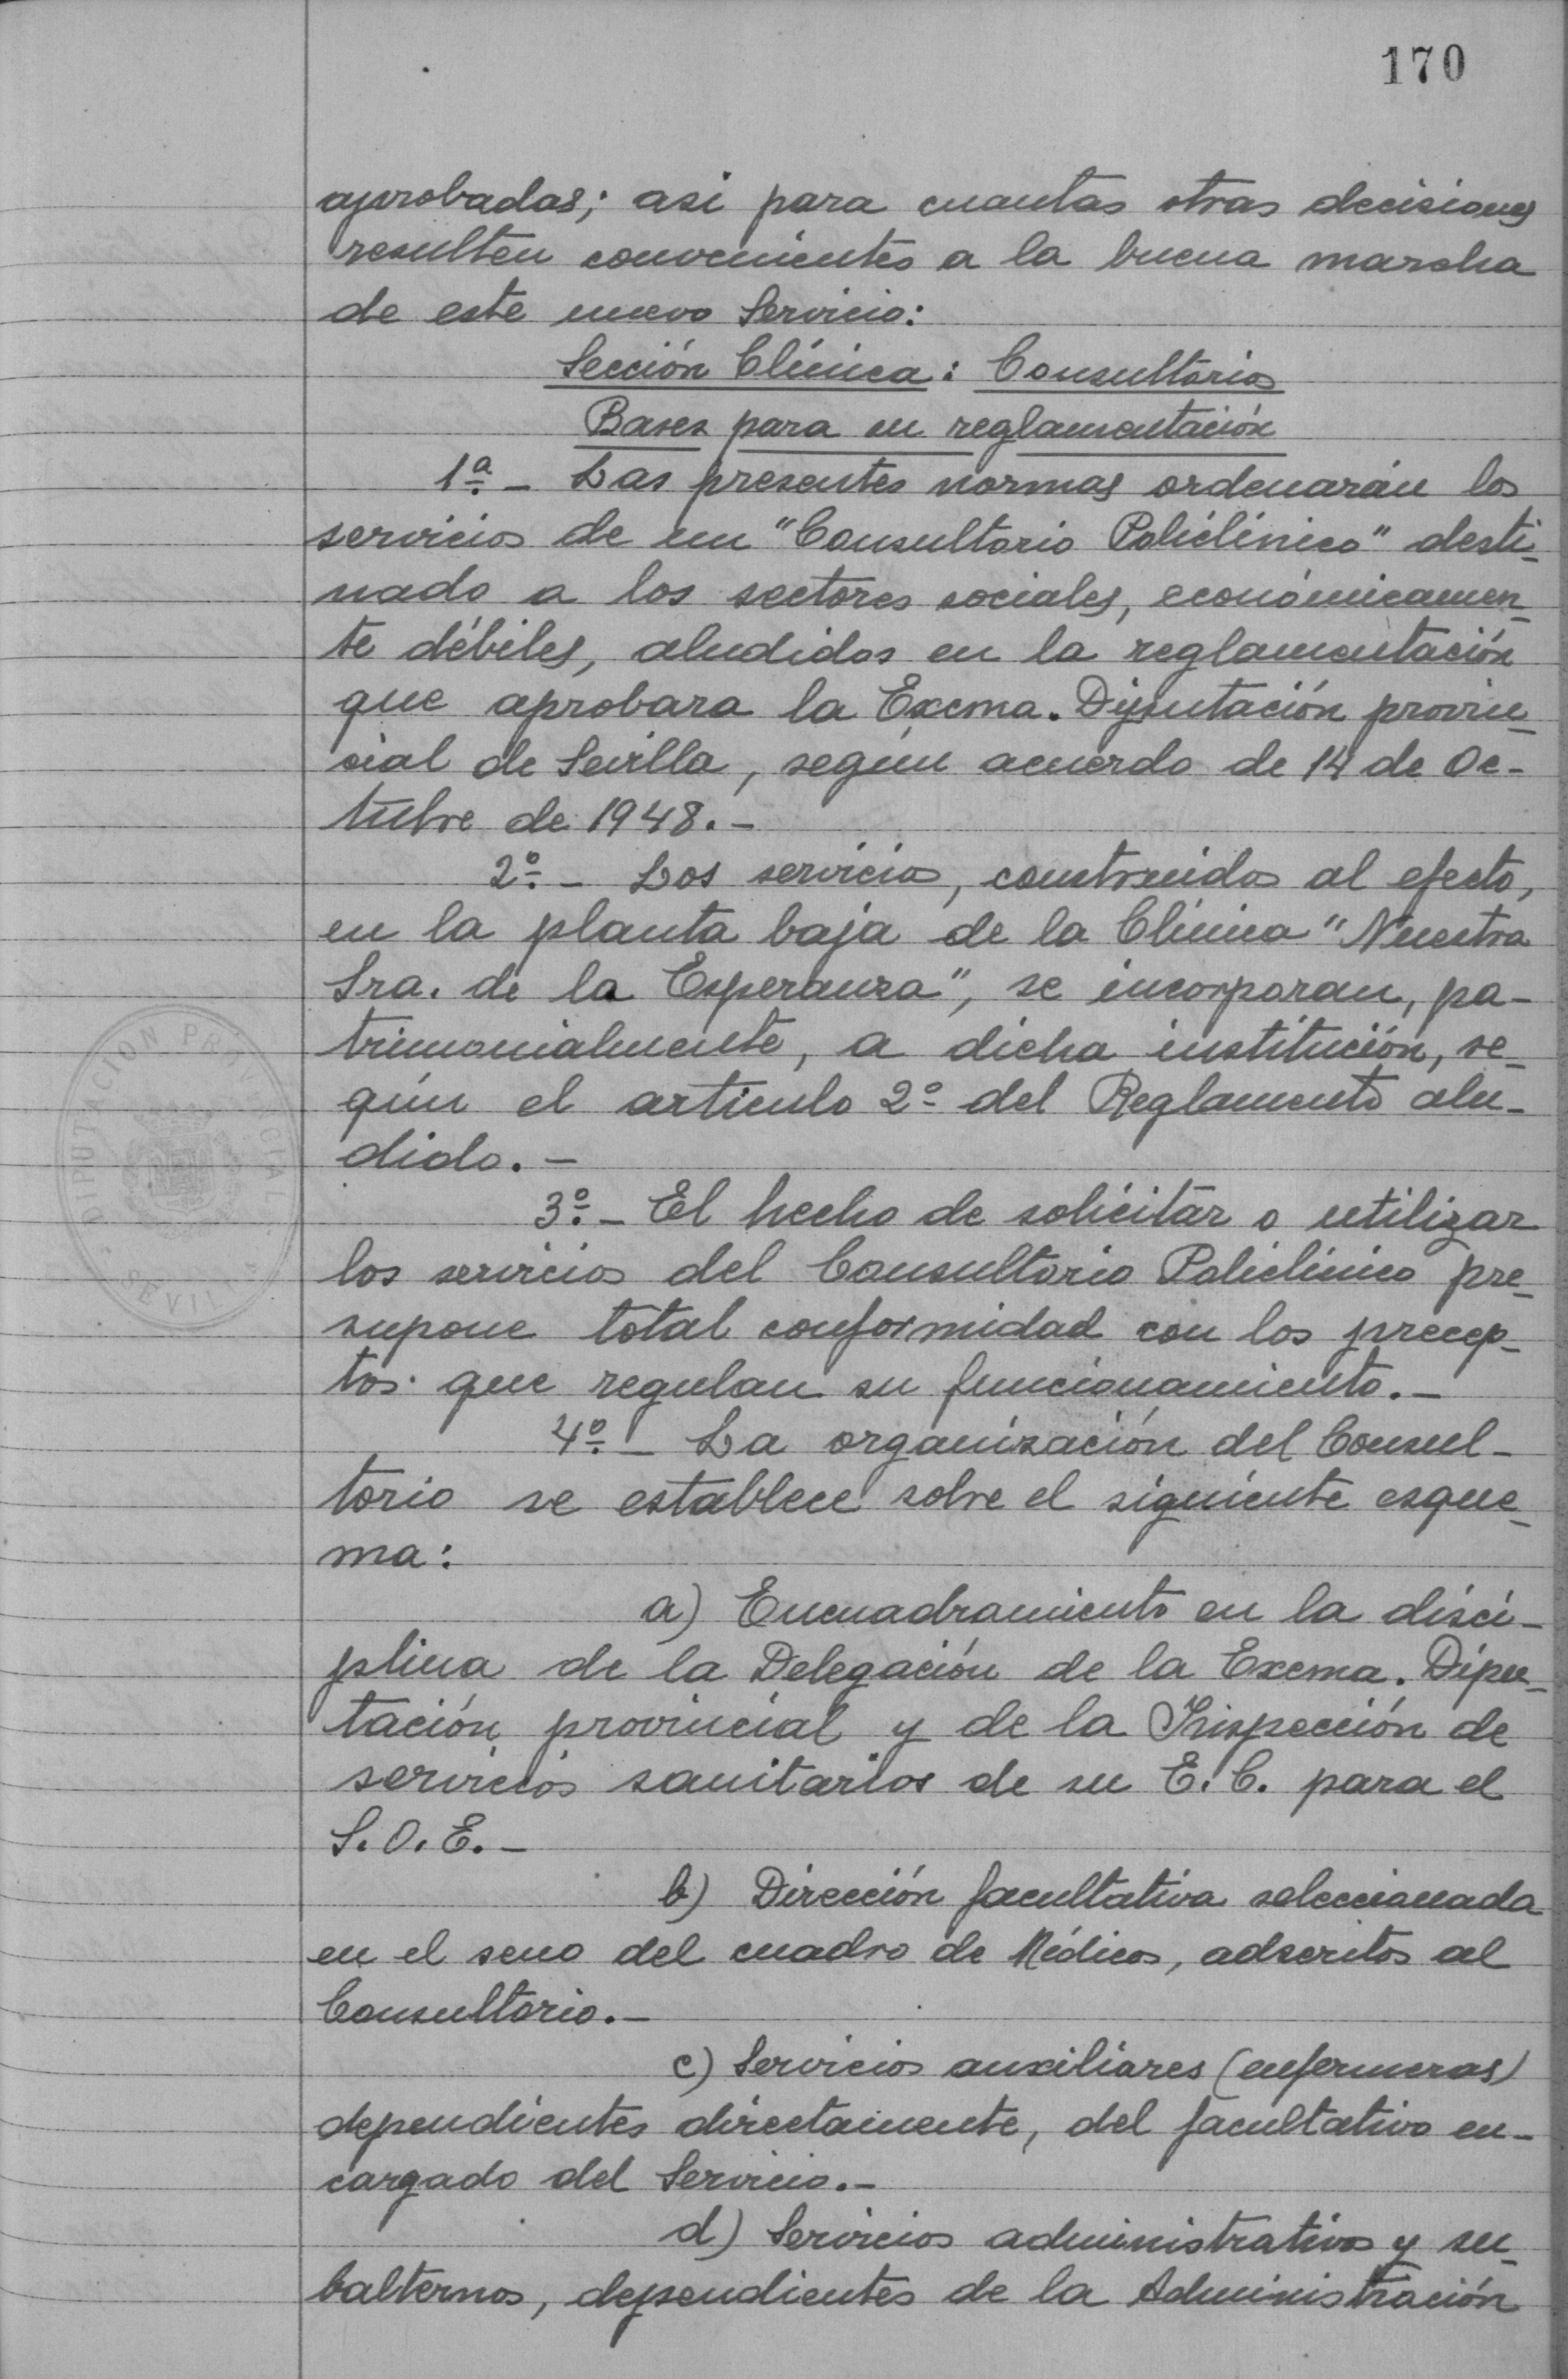 170
aprobadas; asi para cuantas otras decisiones
resulten convenientes a la buena marcha
de este nuevo Servicio:
Sección Clínica: Consultorios
Bases para su reglamentación
1ª.- Las presentes normas ordenarán los
servicios de un "Consultorio Policlínico" desti-
nado a los sectores sociales, económicamen-
te débiles, aludidos en la reglamentación
que aprobara la Excma. Diputación provin-
cial de Sevilla, según acuerdo de 14 de Oc-
tubre de 1948.-
2º.- Los servicios, construidos al efecto,
en la planta baja de la Clínica "Nuestra
Sra. de la Esperanza", se incorporan, pa-
trimonialmente, a dicha institución, se-
gún el artículo 2º del Reglamento alu-
dido.-
3º.- El hecho de solicitar o utilizar
los servicios del Consultorio Policlínico pre-
supone total conformidad con los precep-
tos que regulan su funcionamiento.-
4º.- La organización del Consul-
torio se establece sobre el siguiente esque-
ma:
a) Encuadramiento en la disci-
plina de la Delegación de la Excma. Dipu-
tación provincial y de la Inspección de
servicios sanitarios de su E.C. para el
S.O.E.-
b) Dirección facultativa seleccionada
en el seno del cuadro de Médicos, adscritos al
Consultorio.-
c) Servicios auxiliares (enfermeras)
dependientes directamente, del facultativo en-
cargado del Servicio.-
d) Servicios administrativos y su-
balternos, dependientes de la Administración
DIPUTACION PROVINCIAL
SEVILLA